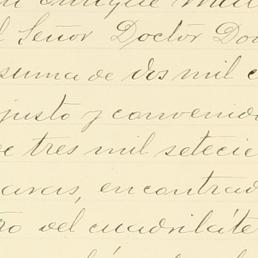 Enrique
l Señor Doctor Do
suma de dos mil c
justo y convenid
e tres mil setecie
aras, encontrad
ro del cuadriláte